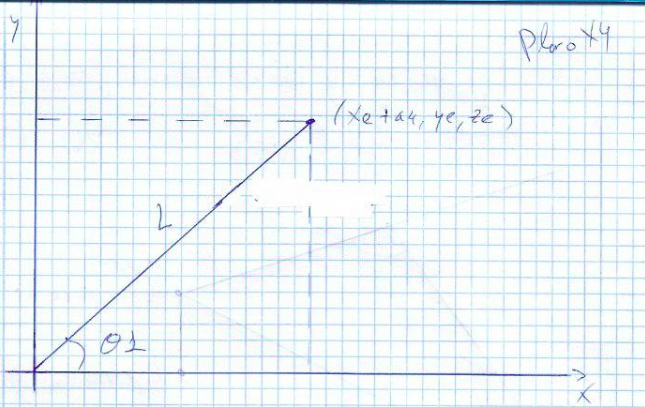 y
Plano XY
(xe+a4, ye, ze)
L
θ1
x